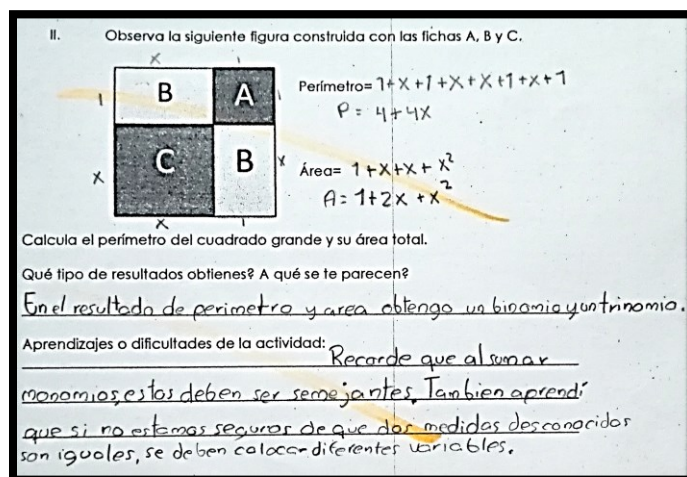 II. Observa la siguiente figura construida con las fichas A, B y C.
x 1
1 B A 1
Perímetro= 1+x+1+x+x+1+x+1
P = 4+4x
x C B x
Área= 1+x+x+x²
A= 1+2x+x²
x 1
Calcula el perímetro del cuadrado grande y su área total.
Qué tipo de resultados obtienes? A qué se te parecen?
En el resultado de perimetro y area obtengo un binomio y un trinomio.
Aprendizajes o dificultades de la actividad: Recorde que al sumar
monomios, estos deben ser semejantes. Tambien aprendí
que si no estamos seguros de que dos medidas desconocidas
son iguales, se deben colocar diferentes variables.